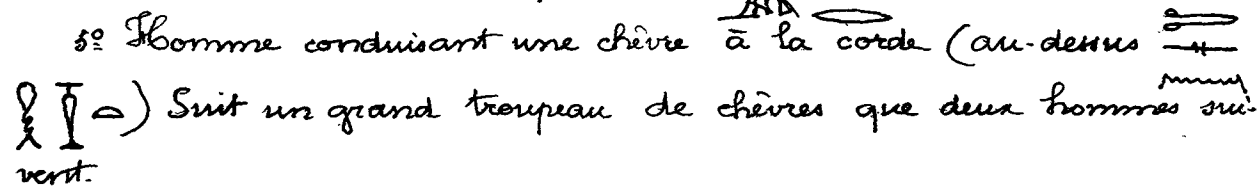 5º Homme conduisant une chèvre à la corde (au-dessus
) Suit un grand troupeau de chèvres que deux hommes sui-
vent.